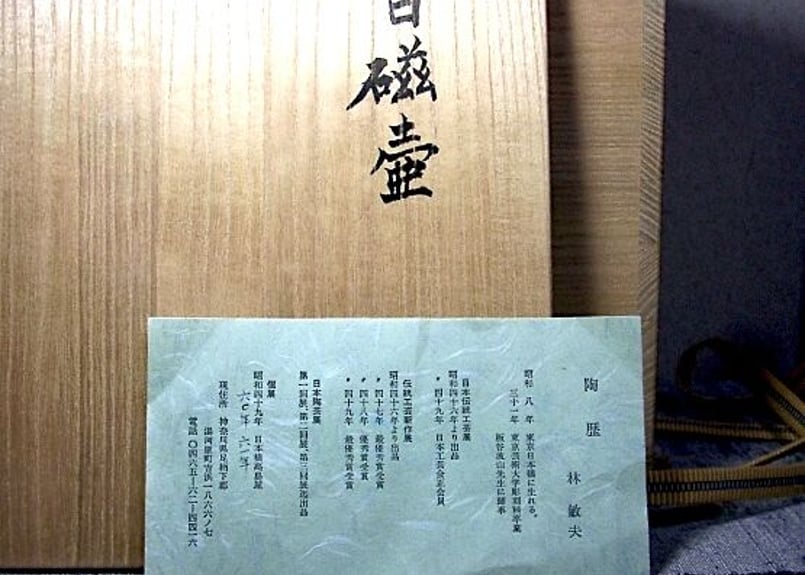 白磁壷
陶歴
林敏夫
昭和 八 年 東京日本橋に生れる。
三十一年 東京芸術大学彫刻科卒業
板谷波山先生に師事
日本伝統工芸展
昭和四十六年より出品
〃 四十九年 日本工芸会正会員
伝統工芸新作展
昭和四十六年より出品
〃 四十七年 最優秀賞受賞
〃 四十八年 優秀賞受賞
〃 四十九年 最優秀賞受賞
日本陶芸展
第一回展、第二回展、第三回展選出品
個展
昭和四十九年 日本橋高島屋
六〇年 六一年
現住所 神奈川県足柄下郡
湯河原町宮浜一八六六ノ七
電話 〇四六五ー六二ー四四一六